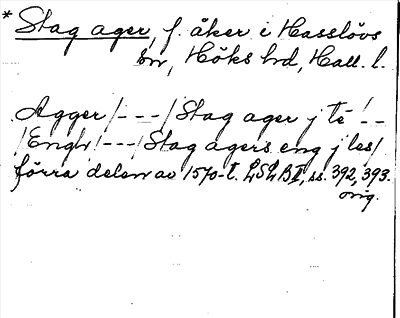 * Stag ager, f. åker i Hasslövs
sn, Höks hd, Hall. l.
Agger /---/ Stag ager j té /--
/ Engh /---/ Stag agers eng j les /
förra delen av 1570-t. LSLB II, ss. 392, 393.
orig.